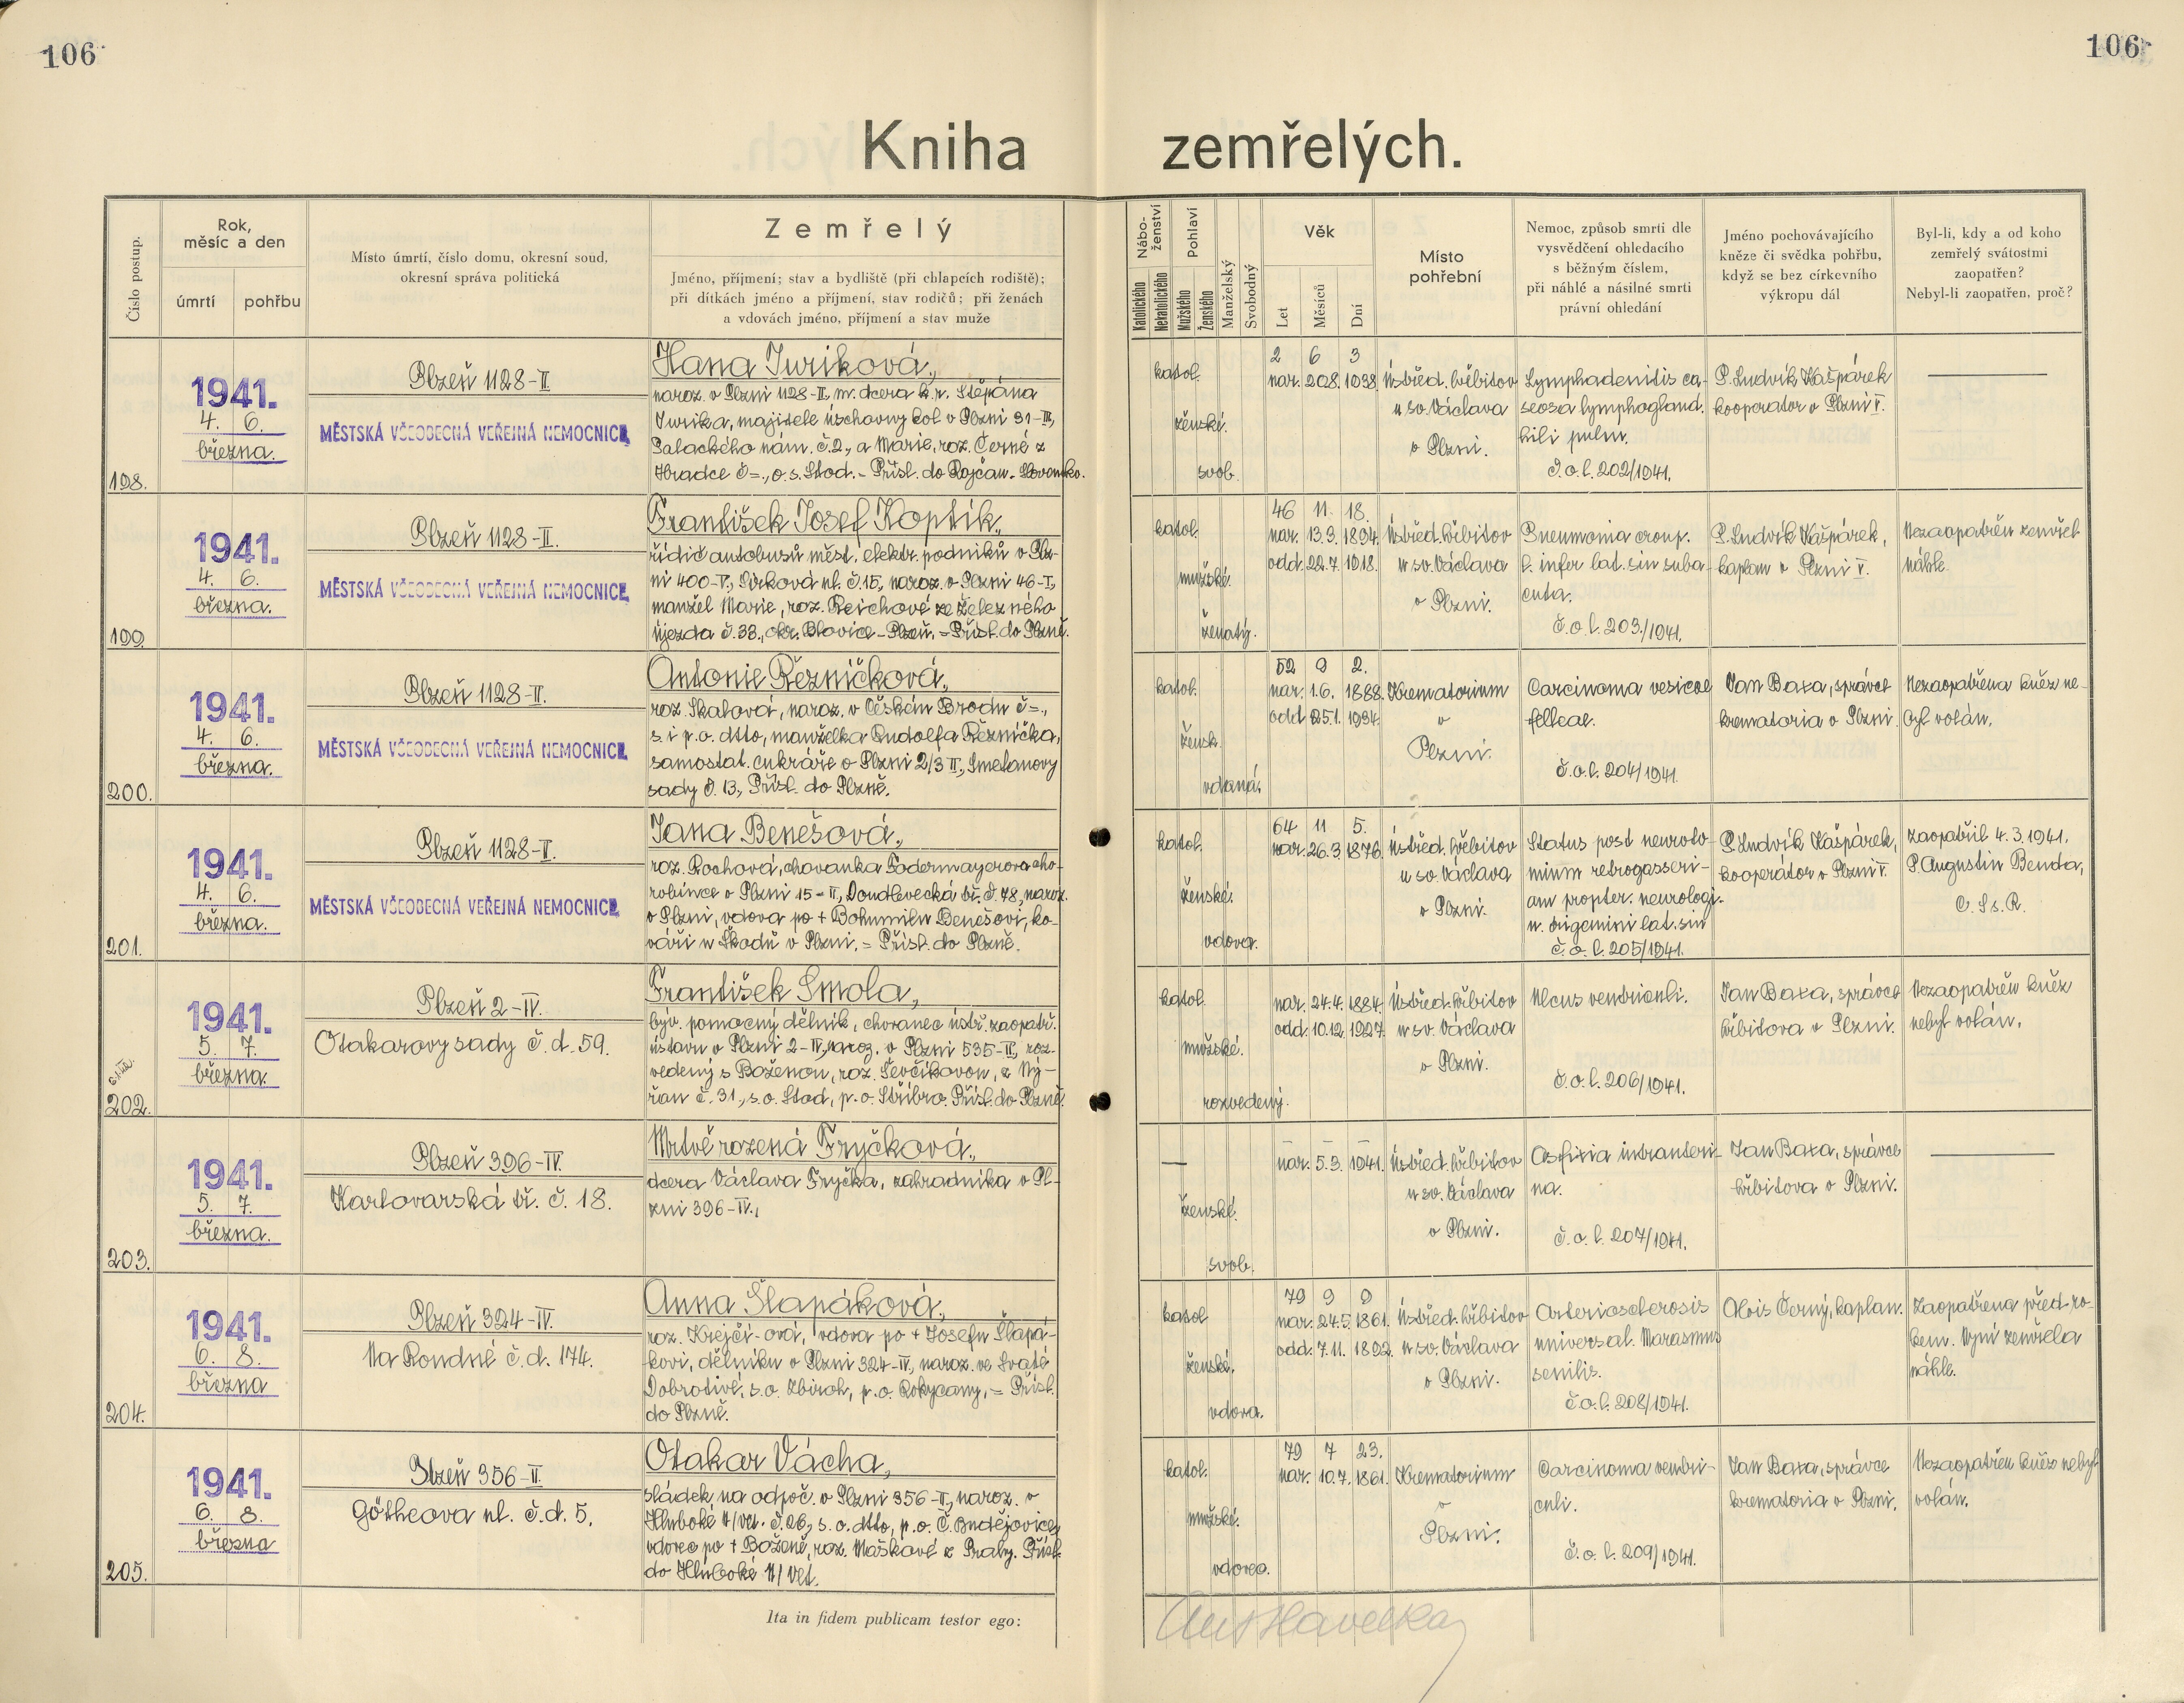 106
106
Kniha zemřelých.
Číslo postup.
Rok,
měsíc a den
úmrtí
pohřbu
Místo úmrtí, číslo domu, okresní soud,
okresní správa politická
Zemřelý
Jméno, příjmení; stav a bydliště (při chlapcích rodiště);
při dítkách jméno a příjmení, stav rodičů; při ženách
a vdovách jméno, příjmení a stav muže
Nábo-
ženství
Katolického
Nekatolického
Pohlaví
Mužského
Ženského
Manželský
Svobodný
Věk
Let
Měsíců
Dní
Místo
pohřební
Nemoc, způsob smrti dle
vysvědčení ohledacího
s běžným číslem,
při náhlé a násilné smrti
právní ohledání
Jméno pochovávajícího
kněze či svědka pohřbu,
když se bez církevního
výkropu dál
Byl-li, kdy a od koho
zemřelý svátostmi
zaopatřen?
Nebyl-li zaopatřen, proč?
198.
1941.
4. 6.
března.
Plzeň 1128-II
MĚSTSKÁ VŠEOBECNÁ VEŘEJNÁ NEMOCNICE
Hana Juriková,
naroz. v Plzni 1128-II, m. dcera k. r. Štěpána
Jurika, majitele úschovny kol v Plzni 31-III,
Palackého nám. č. 2, a Marie, roz. Černé z
Hradce č=., o. s. Stod. - Přísl. do Rajčan - Slovensko.
katol.
ženské.
svob.
2 6 3
nar. 28.8. 1938.
Ústřed. hřbitov
u sv. Václava
v Plzni.
Lymphadenitis ca-
seosa lymphogland.
hili pulm.
Č. o. l. 202/1941.
P. Ludvík Kašpárek
kooperator v Plzni V.
199.
1941.
4. 6.
března.
Plzeň 1128-II.
MĚSTSKÁ VŠEOBECNÁ VEŘEJNÁ NEMOCNICE
František Josef Koptik,
řidič autobusů měst. elektr. podniků v Plz-
ni 400-V., Sirková ul. č. 15, naroz. v Plzni 46-I.,
manžel Marie, roz. Reichové ze Železného
Újezda č. 38., okr. Blovice - Plzeň. = Přísl. do Plzně.
katol.
mužské.
ženatý.
46 11. 18.
nar. 13.3. 1894.
odd. 22.7. 1918.
Ústřed. hřbitov
u sv. Václava
v Plzni.
Pneumonia croup.
l. infer lat. sin suba-
cuta.
č. o. l. 203./1941.
P. Ludvík Kašpárek,
kaplan v Plzni V.
Nezaopatřen zemřel
náhle.
200.
1941.
4. 6.
března.
Plzeň 1128-II.
MĚSTSKÁ VŠEOBECNÁ VEŘEJNÁ NEMOCNICE
Antonie Řezníčková,
roz. Skalová, naroz. v Českém Brodu č=.,
s. i p. o. dtto, manželka Rudolfa Řezníčka,
samostat. cukráře v Plzni 2/3 II., Smetanovy
sady č. 13., Přísl. do Plzně.
katol.
žensk.
vdaná.
52 9 2.
nar. 1.6. 1888.
odd. 25.1. 1934.
Krematorium
v
Plzni.
Carcinoma vesicae
felleae.
č. o. l. 204/1941.
Jan Baxa, správce
krematoria v Plzni.
Nezaopatřena kněz ne-
byl volán.
201.
1941.
4. 6.
března.
Plzeň 1128-II.
MĚSTSKÁ VŠEOBECNÁ VEŘEJNÁ NEMOCNICE
Jana Benešová,
roz. Rochová, chovanka Födermayerova cho-
robince v Plzni 15-II, Doudlevecká tř. č. 78, naroz.
v Plzni, vdova po + Bohumilu Benešovi, ko-
váři u Škodů v Plzni. = Přísl. do Plzně.
katol.
ženské.
vdova.
64 11 5.
nar. 26.3. 1876.
Ústřed. hřbitov
u sv. Václava
v Plzni.
Status post neuroto-
mium retrogasseri-
am propter. neurologi.
n. trigemini lat. sin
č. o. l. 205/1941.
P. Ludvík Kašpárek,
kooperátor v Plzni V.
Zaopatřil 4. 3. 1941.
P. Augustin Benda,
C. Ss. R.
202.
1941.
5. 7.
března.
Plzeň 2-IV.
Otakarovy sady č. d. 59.
František Smola,
býv. pomocný dělník, chovanec ústř. zaopatř.
ústavu v Plzni 2-IV, naroz. v Plzni 535-II, roz-
vedený s Boženou, roz. Ševčíkovou, z Ný-
řan č. 31., s. o. Stod, p. o. Stříbro. Přísl. do Plzně.
katol.
mužské.
rozvedený.
nar. 24.4. 1884.
odd. 10.12. 1927.
Ústřed. hřbitov
u sv. Václava
v Plzni.
Ulcus ventriculi.
č. o. l. 206/1941.
Jan Baxa, správce
hřbitova v Plzni.
Nezaopatřen kněz
nebyl volán.
203.
1941.
5. 7.
března.
Plzeň 396-IV.
Karlovarská tř. č. 18.
Mrtvě rozená Fryčková,
dcera Václava Fryčka, zahradníka v Pl-
zni 396-IV.,
ženské.
svob.
nar. 5.3. 1941.
Ústřed. hřbitov
u sv. Václava
v Plzni.
Asfixia intrauteri-
na.
č. o. l. 207/1941.
Jan Baxa, správce
hřbitova v Plzni.
204.
1941.
6. 8.
března
Plzeň 324-IV.
Na Rondné č. d. 174.
Anna Šlapáková,
roz. Krejčí-ová, vdova po + Josefu Šlapá-
kovi, dělníku v Plzni 324-IV, naroz. ve Svaté
Dobrotivé, s. o. Zbiroh, p. o. Rokycany. = Přísl.
do Plzně.
katol
ženské.
vdova.
79 9 9
nar. 24.5. 1861.
odd. 7.11. 1892.
Ústřed. hřbitov
u sv. Václava
v Plzni.
Arteriosclerosis
universal. Marasmus
senilis.
č. o. l. 208/1941.
Alois Černý, kaplan.
Zaopatřena před ro-
kem. Nyní zemřela
náhle.
205.
1941.
6. 8.
března
Plzeň 356-II.
Götheova ul. č. d. 5.
Otakar Vácha,
sládek na odpoč. v Plzni 356-II, naroz. v
Hluboké n/Vlt. č. 26, s. o. dtto, p. o. Č. Budějovice,
vdovec po + Boženě, roz. Maškové z Prahy. Přísl.
do Hluboké n/Vlt.
katol.
mužské.
vdovec.
79 7 23.
nar. 10.7. 1861.
Krematorium
v
Plzni.
Carcinoma ventri-
culi.
č. o. l. 209/1941.
Jan Baxa, správce
krematoria v Plzni.
Nezaopatřen kněz nebyl
volán.
Ita in fidem publicam testor ego:
Ant Havelka